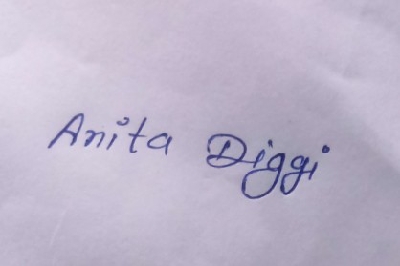 Anita Diggi